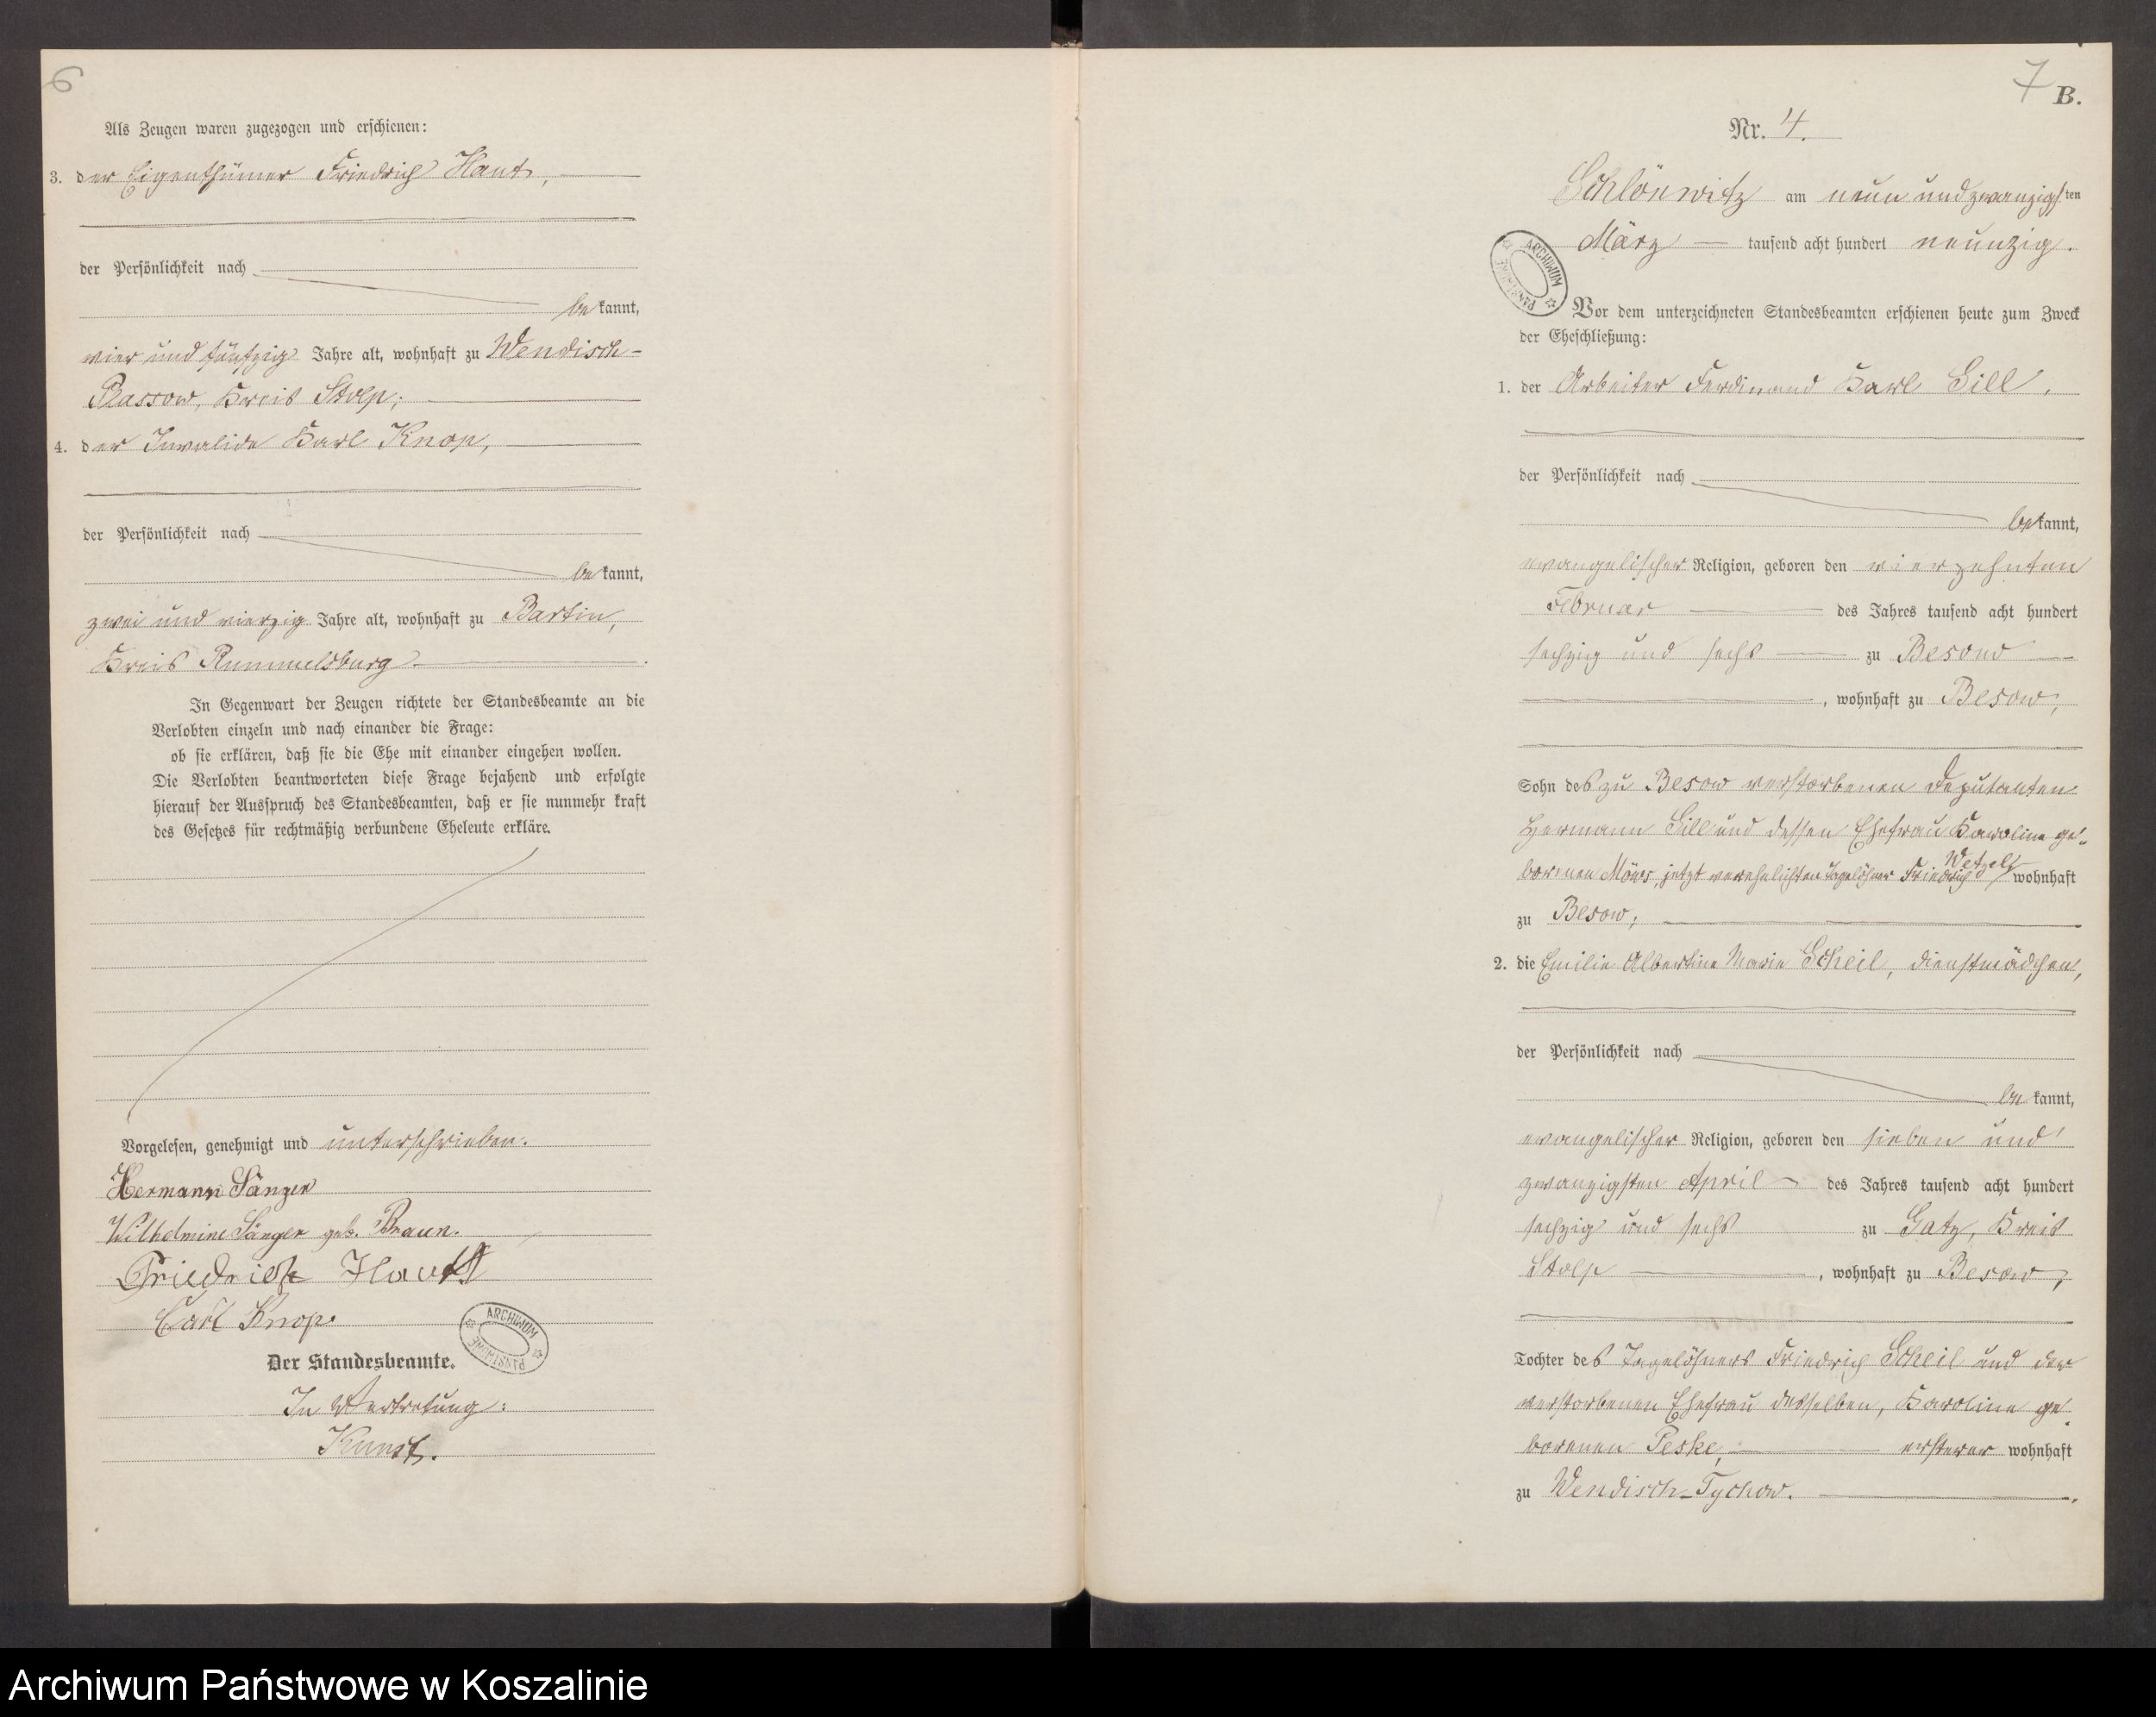 6
Als Zeugen waren zugezogen und erschienen:
3. der Eigenthümer Friedrich Haut,
der Persönlichkeit nach
bekannt,
vier und fünfzig Jahre alt, wohnhaft zu Wendisch-
Plassow, Kreis Stolp;
4. der Invalide Karl Knop,
der Persönlichkeit nach
bekannt,
zwei und vierzig Jahre alt, wohnhaft zu Bartin,
Kreis Rummelsburg.
In Gegenwart der Zeugen richtete der Standesbeamte an die
Verlobten einzeln und nach einander die Frage:
ob sie erklären, daß sie die Ehe mit einander eingehen wollen.
Die Verlobten beantworteten diese Frage bejahend und erfolgte
hierauf der Ausspruch des Standesbeamten, daß er sie nunmehr kraft
des Gesetzes für rechtmäßig verbundene Eheleute erkläre.
Vorgelesen, genehmigt und unterschrieben.
Hermann Sänger
Wilhelmine Sänger geb. Braun.
Friedrich Haut
Carl Knop.
ARCHIWUM PAŃSTWOWE
Der Standesbeamte.
In Vertretung:
Kunst.
7 B.
Nr. 4.
Schlönwitz am neun und zwanzigsten
März tausend acht hundert neunzig.
ARCHIWUM PAŃSTWOWE
Vor dem unterzeichneten Standesbeamten erschienen heute zum Zweck
der Eheschließung:
1. der Arbeiter Ferdinand Karl Sill,
der Persönlichkeit nach
bekannt,
evangelischer Religion, geboren den vierzehnten
Februar des Jahres tausend acht hundert
sechzig und sechs zu Besow
, wohnhaft zu Besow,
Sohn des zu Besow verstorbenen Deputanten
Hermann Sill und dessen Ehefrau Karoline ge-
borenen jetzt verehelichten Tagelöhner Friedrich Wetzel wohnhaft
zu Besow;
2. die Emilie Albertine Marie Scheil, Dienstmädchen,
der Persönlichkeit nach
bekannt,
evangelischer Religion, geboren den sieben und
zwanzigsten April des Jahres tausend acht hundert
sechzig und sechs zu Gatz, Kreis
Stolp, wohnhaft zu Besow,
Tochter des Tagelöhners Friedrich Scheil und der
verstorbenen Ehefrau desselben, Karoline ge-
borenen Peske, ersterer wohnhaft
zu Wendisch-Tychow.
Archiwum Państwowe w Koszalinie